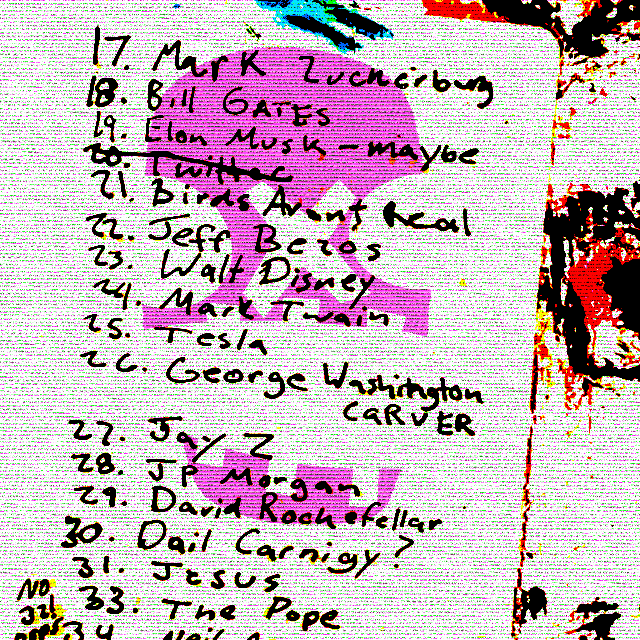 17. Mark Zuckerburg
18. Bill GATES
19. Elon Musk - maybe
20. Twitter
21. Birds Arent Real
22. Jeff Bezos
23. Walt Disney
24. Mark Twain
25. Tesla
26. George Washington
CARVER
27. Jay Z
28. JP Morgan
29. David Rockefellar
30. Dail Carnigy?
31. Jesus
NO
32!
33. The Pope
34.